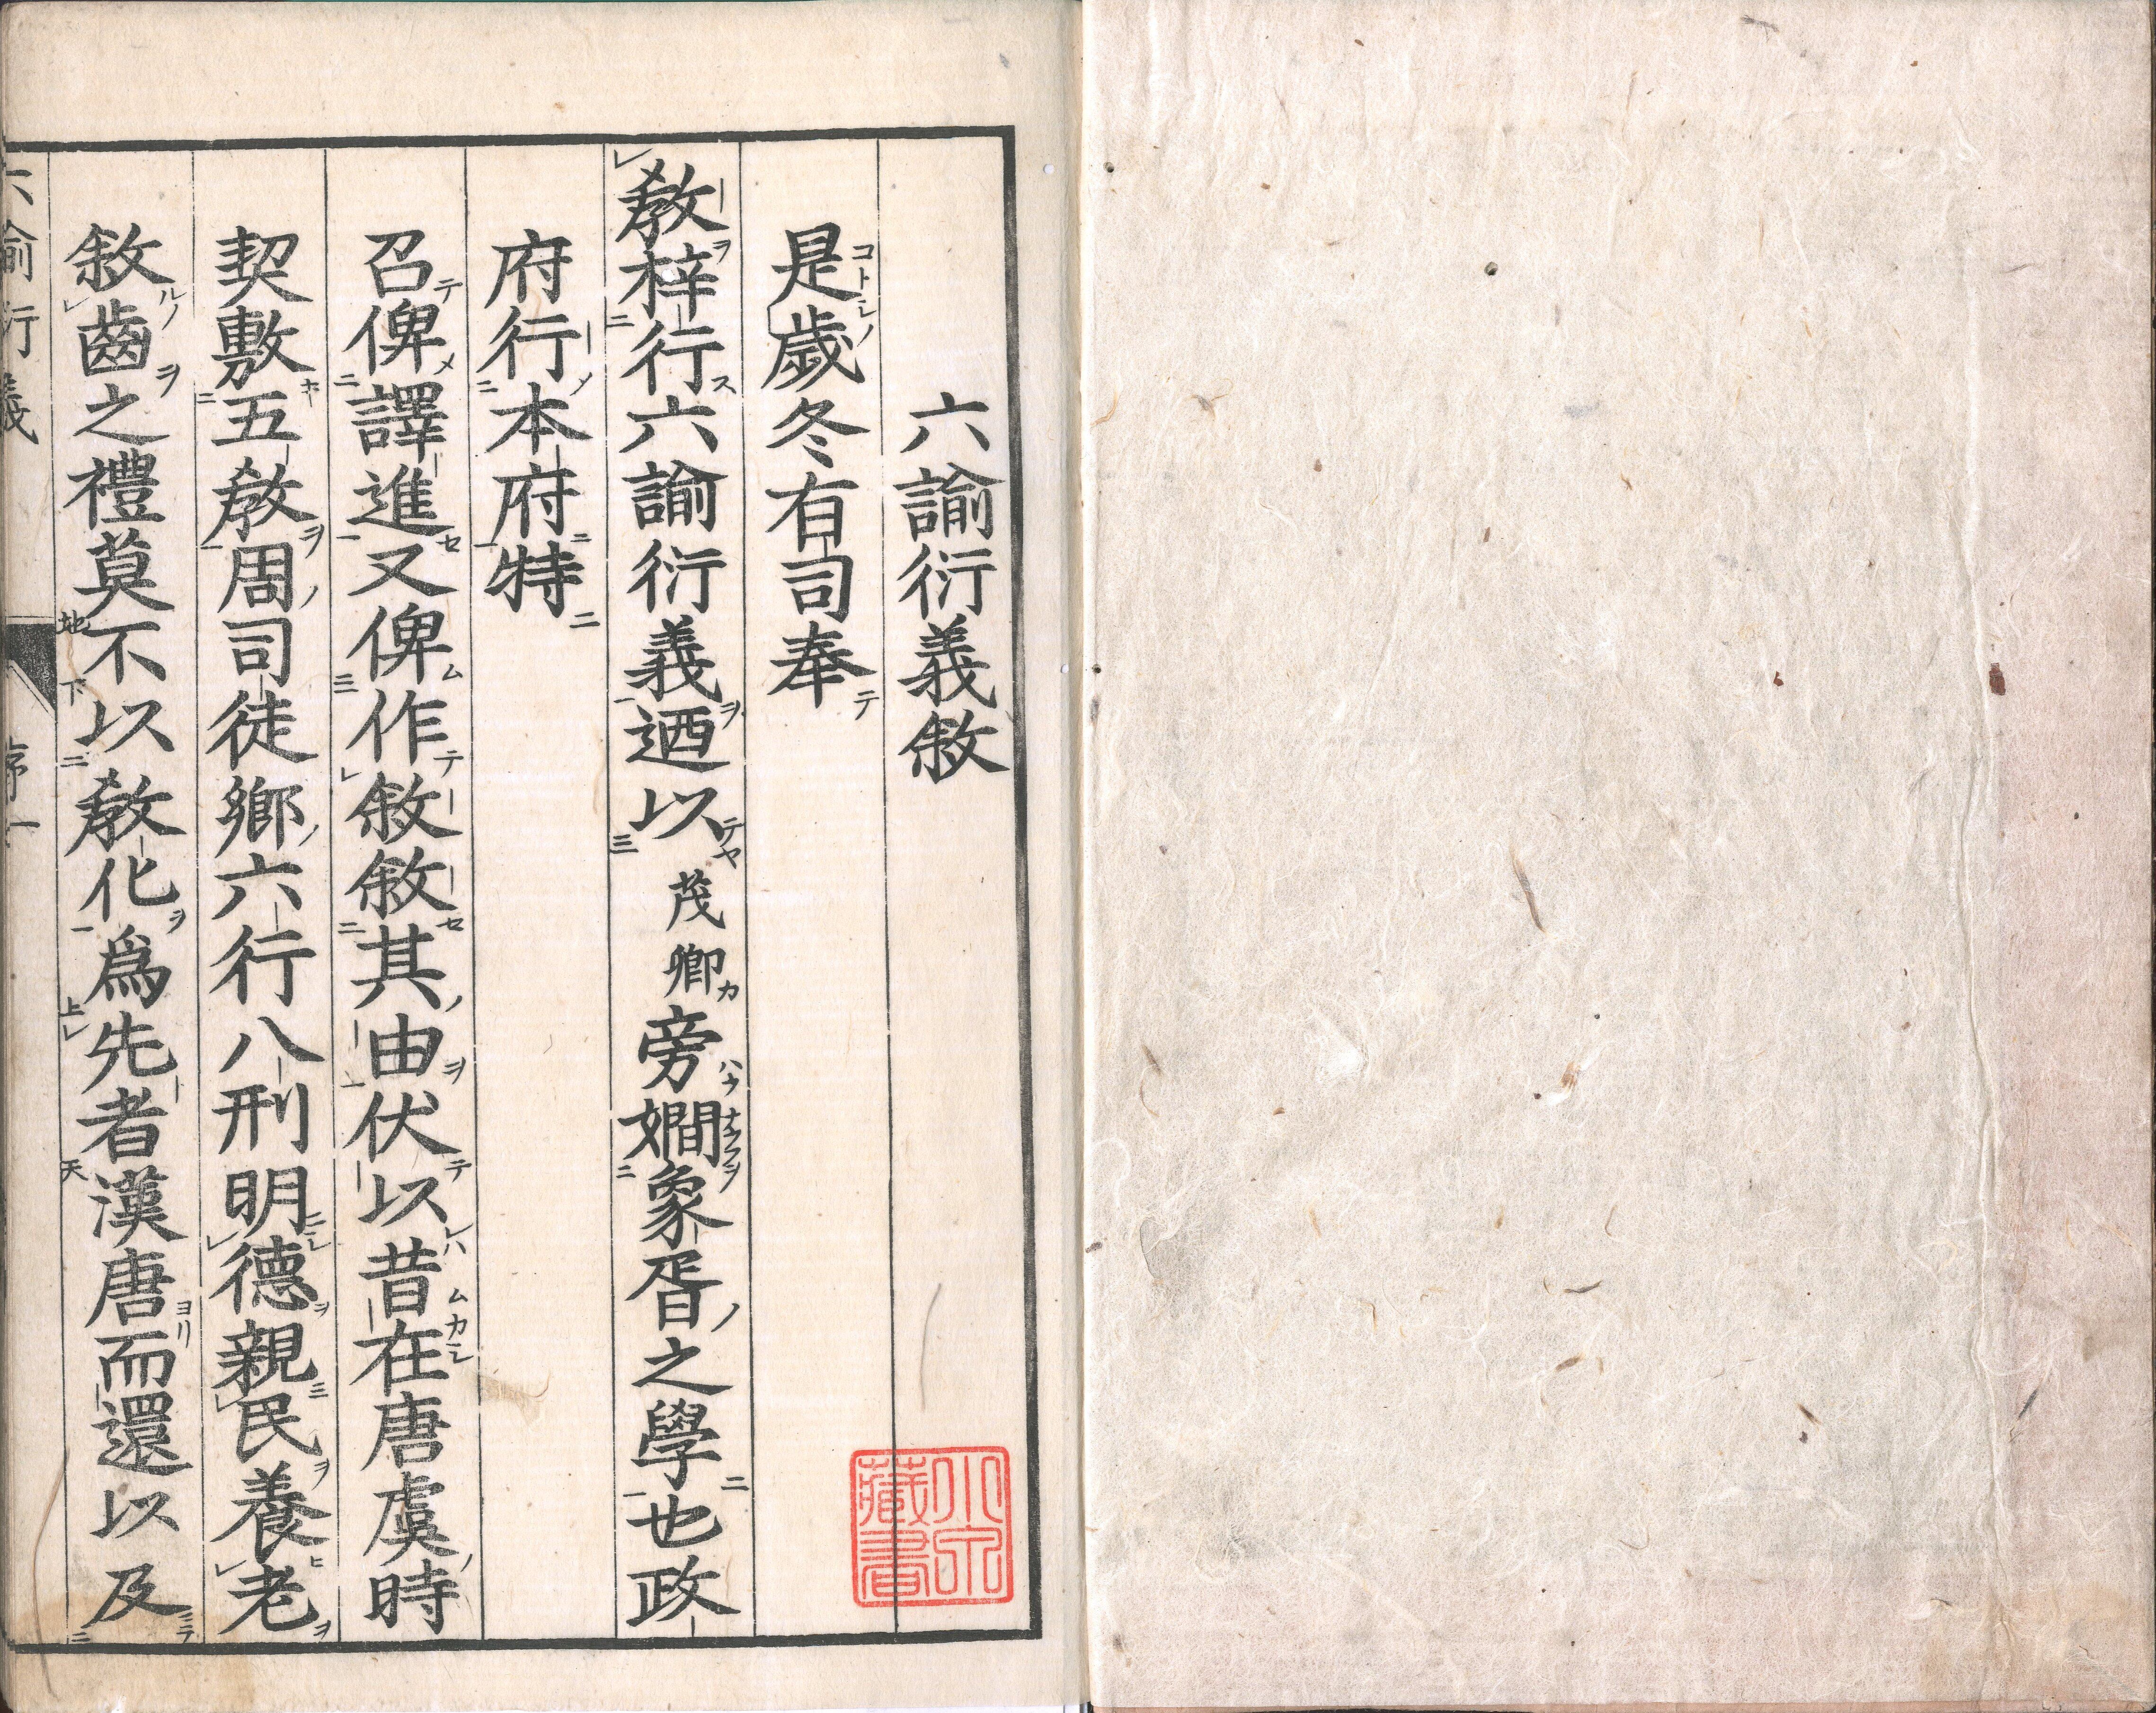 六諭衍義敘
是歲冬有司奉
教梓行六諭衍義迺以茂卿旁嫺象胥之學也政
府行本府特
召俾譯進又俾作敘敘其由伏以昔在唐虞時
契敷五教周司徒鄉六行八刑明德親民養老
敘齒之禮莫不以教化爲先者漢唐而還以及
六諭衍義 序 一